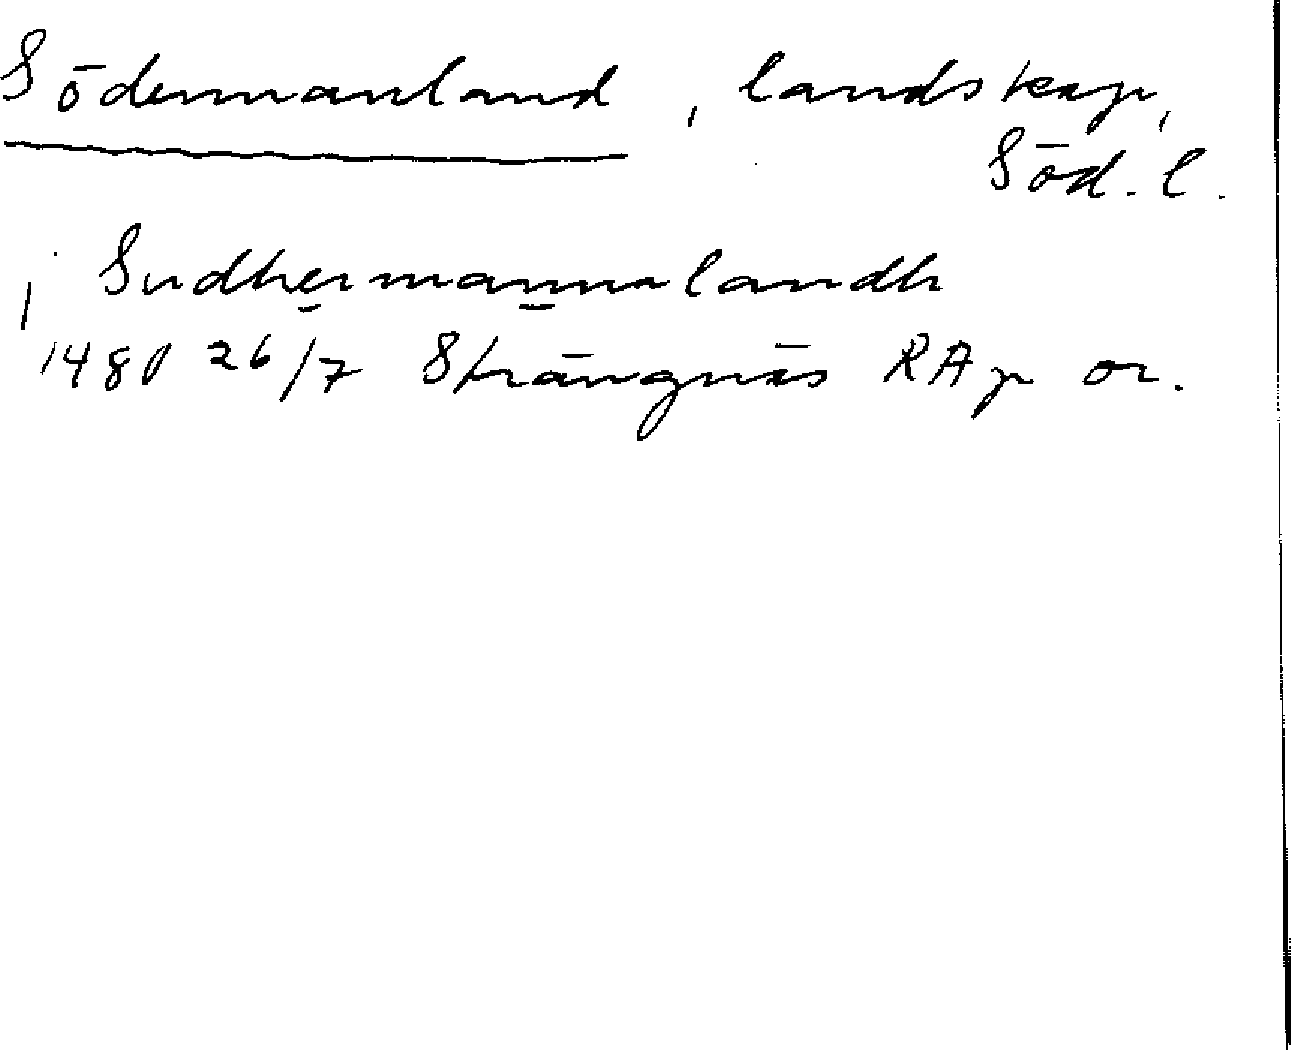 Södermanland, landskap,
Söd. l.
j Sudhermannalandh
1480 26/7 Strängnäs RAp or.